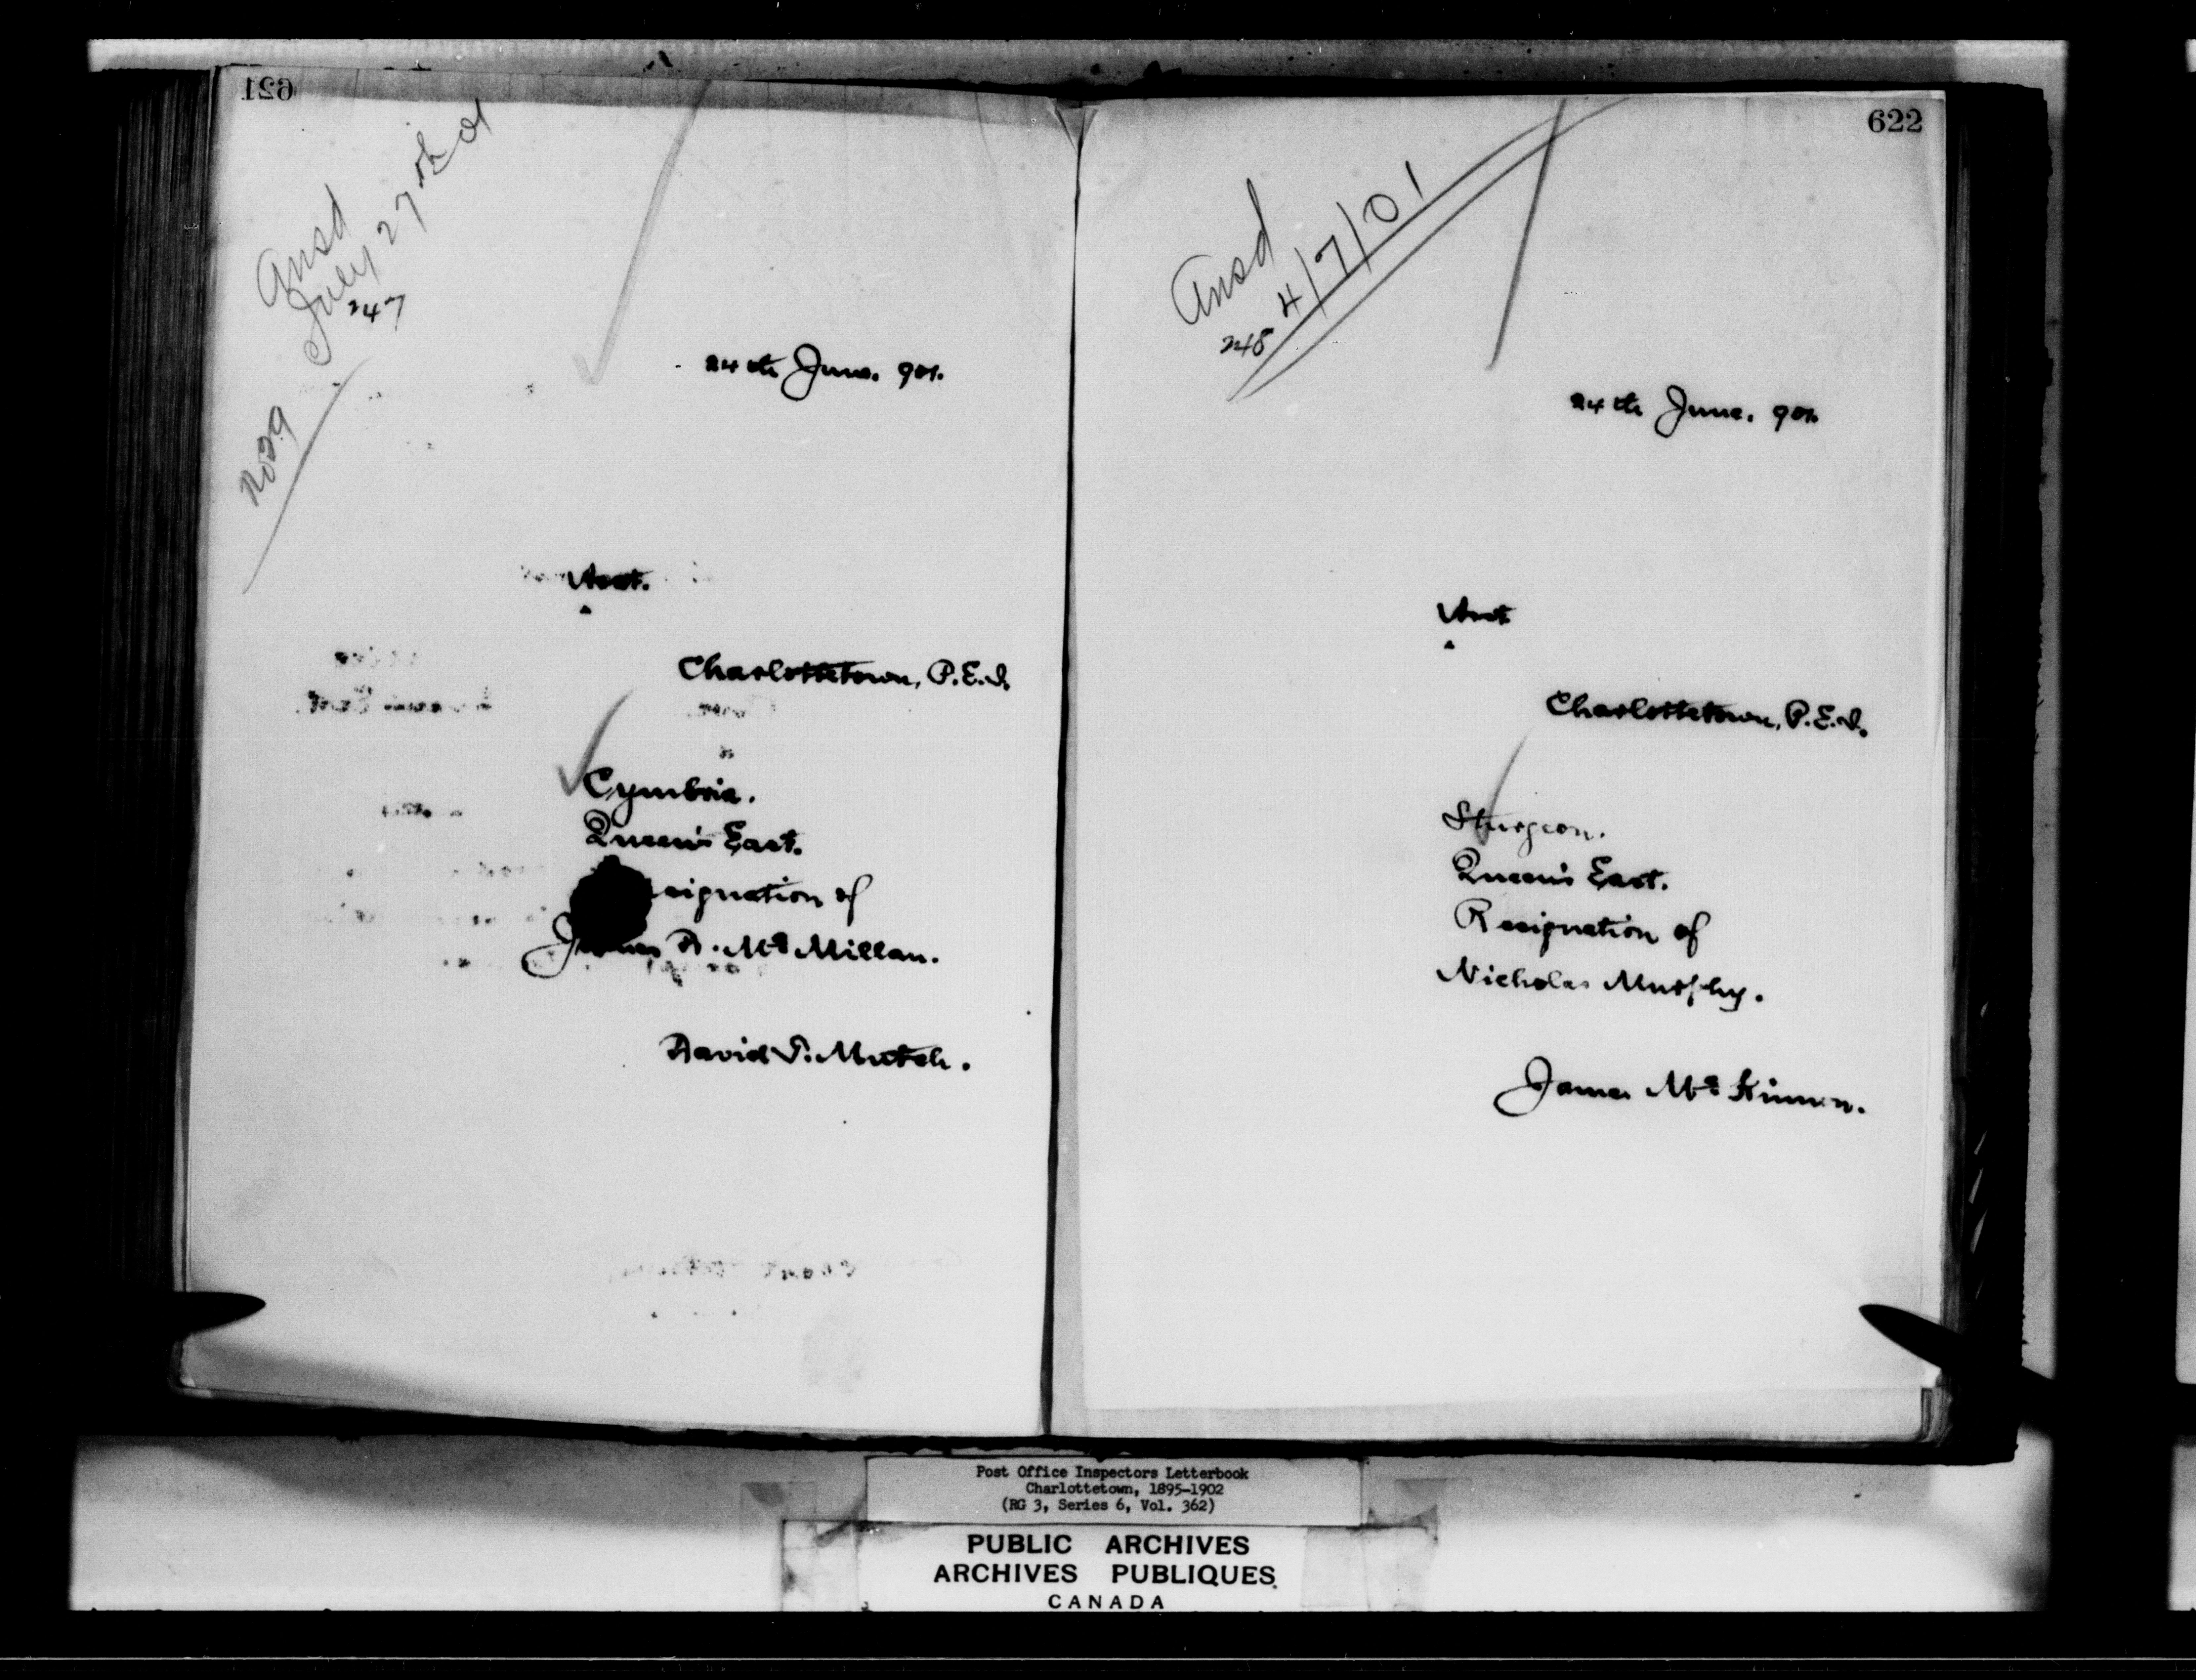 621
Ansd
July 27th 01
247
No 29
24th June. 901.
Charlottetown, P.E.I.
Cymbria.
Queen's East.
esignation of
James R. McMillan.
David P. Mutch.
622
Ansd
4/7/01
248
24th June. 901.
Charlottetown, P.E.I.
Sturgeon.
Queen's East.
Resignation of
Nicholas Murphy.
James McKinnon.
Post Office Inspectors Letterbook
Charlottetown, 1895-1902
(RG 3, Series 6, Vol. 362)
PUBLIC ARCHIVES
ARCHIVES PUBLIQUES
CANADA